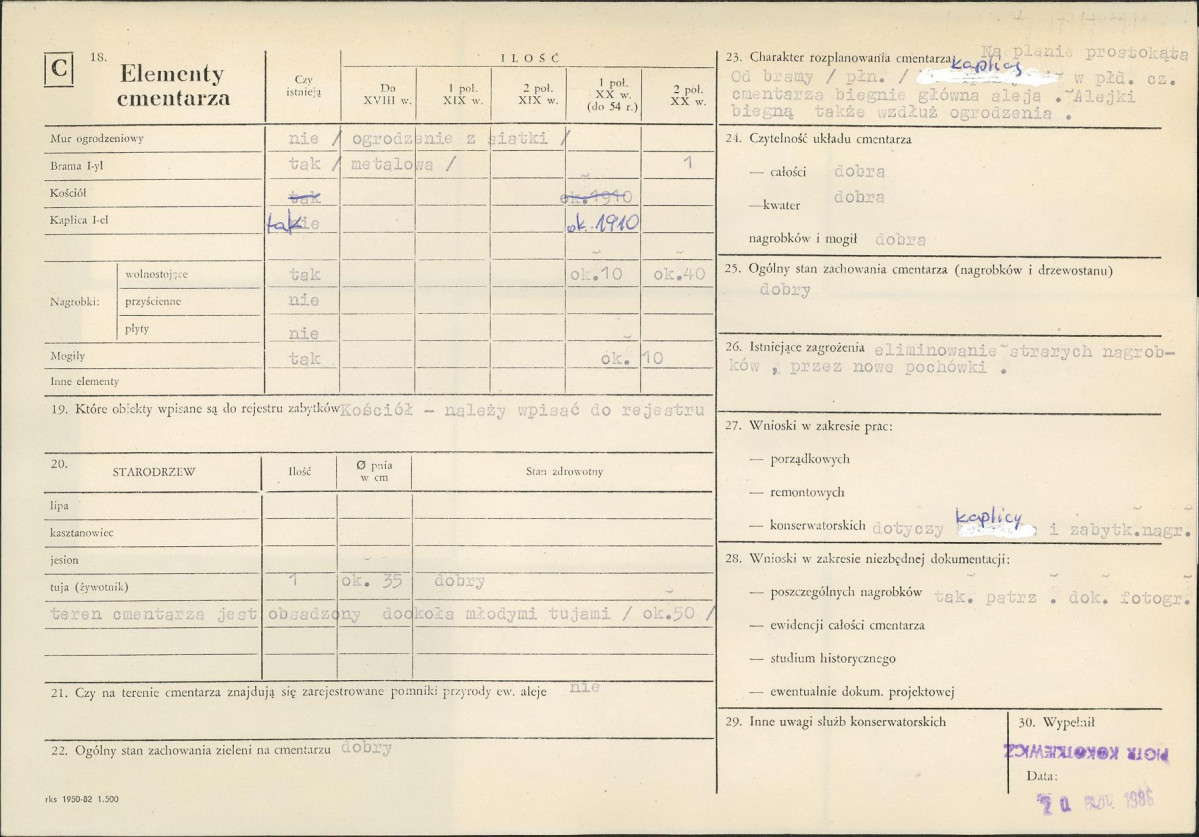 C
18. Elementy cmentarza
Czy istnieją
ILOŚĆ
Do XVIII w.
1 poł. XIX w.
2 poł. XIX w.
1 poł. XX w. (do 54 r.)
2 poł. XX w.
Mur ogrodzeniowy nie / ogrodzenie z siatki /
Brama I-yl tak / metalowa / 1
Kościół tak ok.1910
Kaplica I-el tak ok. 1910
Nagrobki:
wolnostojące tak ok.10 ok.40
przyścienne nie
płyty nie
Mogiły tak ok. 10
Inne elementy
19. Które obiekty wpisane są do rejestru zabytków Kościół - należy wpisąć do rejestru
20. STARODRZEW
Ilość
Ø pnia w cm
Stan zdrowotny
lipa
kasztanowiec
jesion
tuja (żywotnik) 1 ok. 35 dobry
teren cmentarza jest obsadzony dookoła młodymi tujami / ok.50 /
21. Czy na terenie cmentarza znajdują się zarejestrowane pomniki przyrody ew. aleje nie
22. Ogólny stan zachowania zieleni na cmentarzu dobry
rks 1950-82 1.500
23. Charakter rozplanowania cmentarza Na planie prostokąta
Od bramy / płn. / kaplicą w płd. cz.
cmentarza biegnie główna aleja . Alejki
biegną także wzdłuż ogrodzenia .
24. Czytelność układu cmentarza
— całości dobra
—kwater dobra
nagrobków i mogił dobra
25. Ogólny stan zachowania cmentarza (nagrobków i drzewostanu)
dobry
26. Istniejące zagrożenia eliminowanie strarych nagrob-
ków , przez nowe pochówki .
27. Wnioski w zakresie prac:
— porządkowych
— remontowych
— konserwatorskich dotyczy kaplicy i zabytk.nagr.
28. Wnioski w zakresie niezbędnej dokumentacji:
— poszczególnych nagrobków tak. patrz . dok. fotogr.
— ewidencji całości cmentarza
— studium historycznego
— ewentualnie dokum. projektowej
29. Inne uwagi służb konserwatorskich
30. Wypełnił
PIOTR KOKOTKIEWICZ
Data:
20 PAŹ. 1986